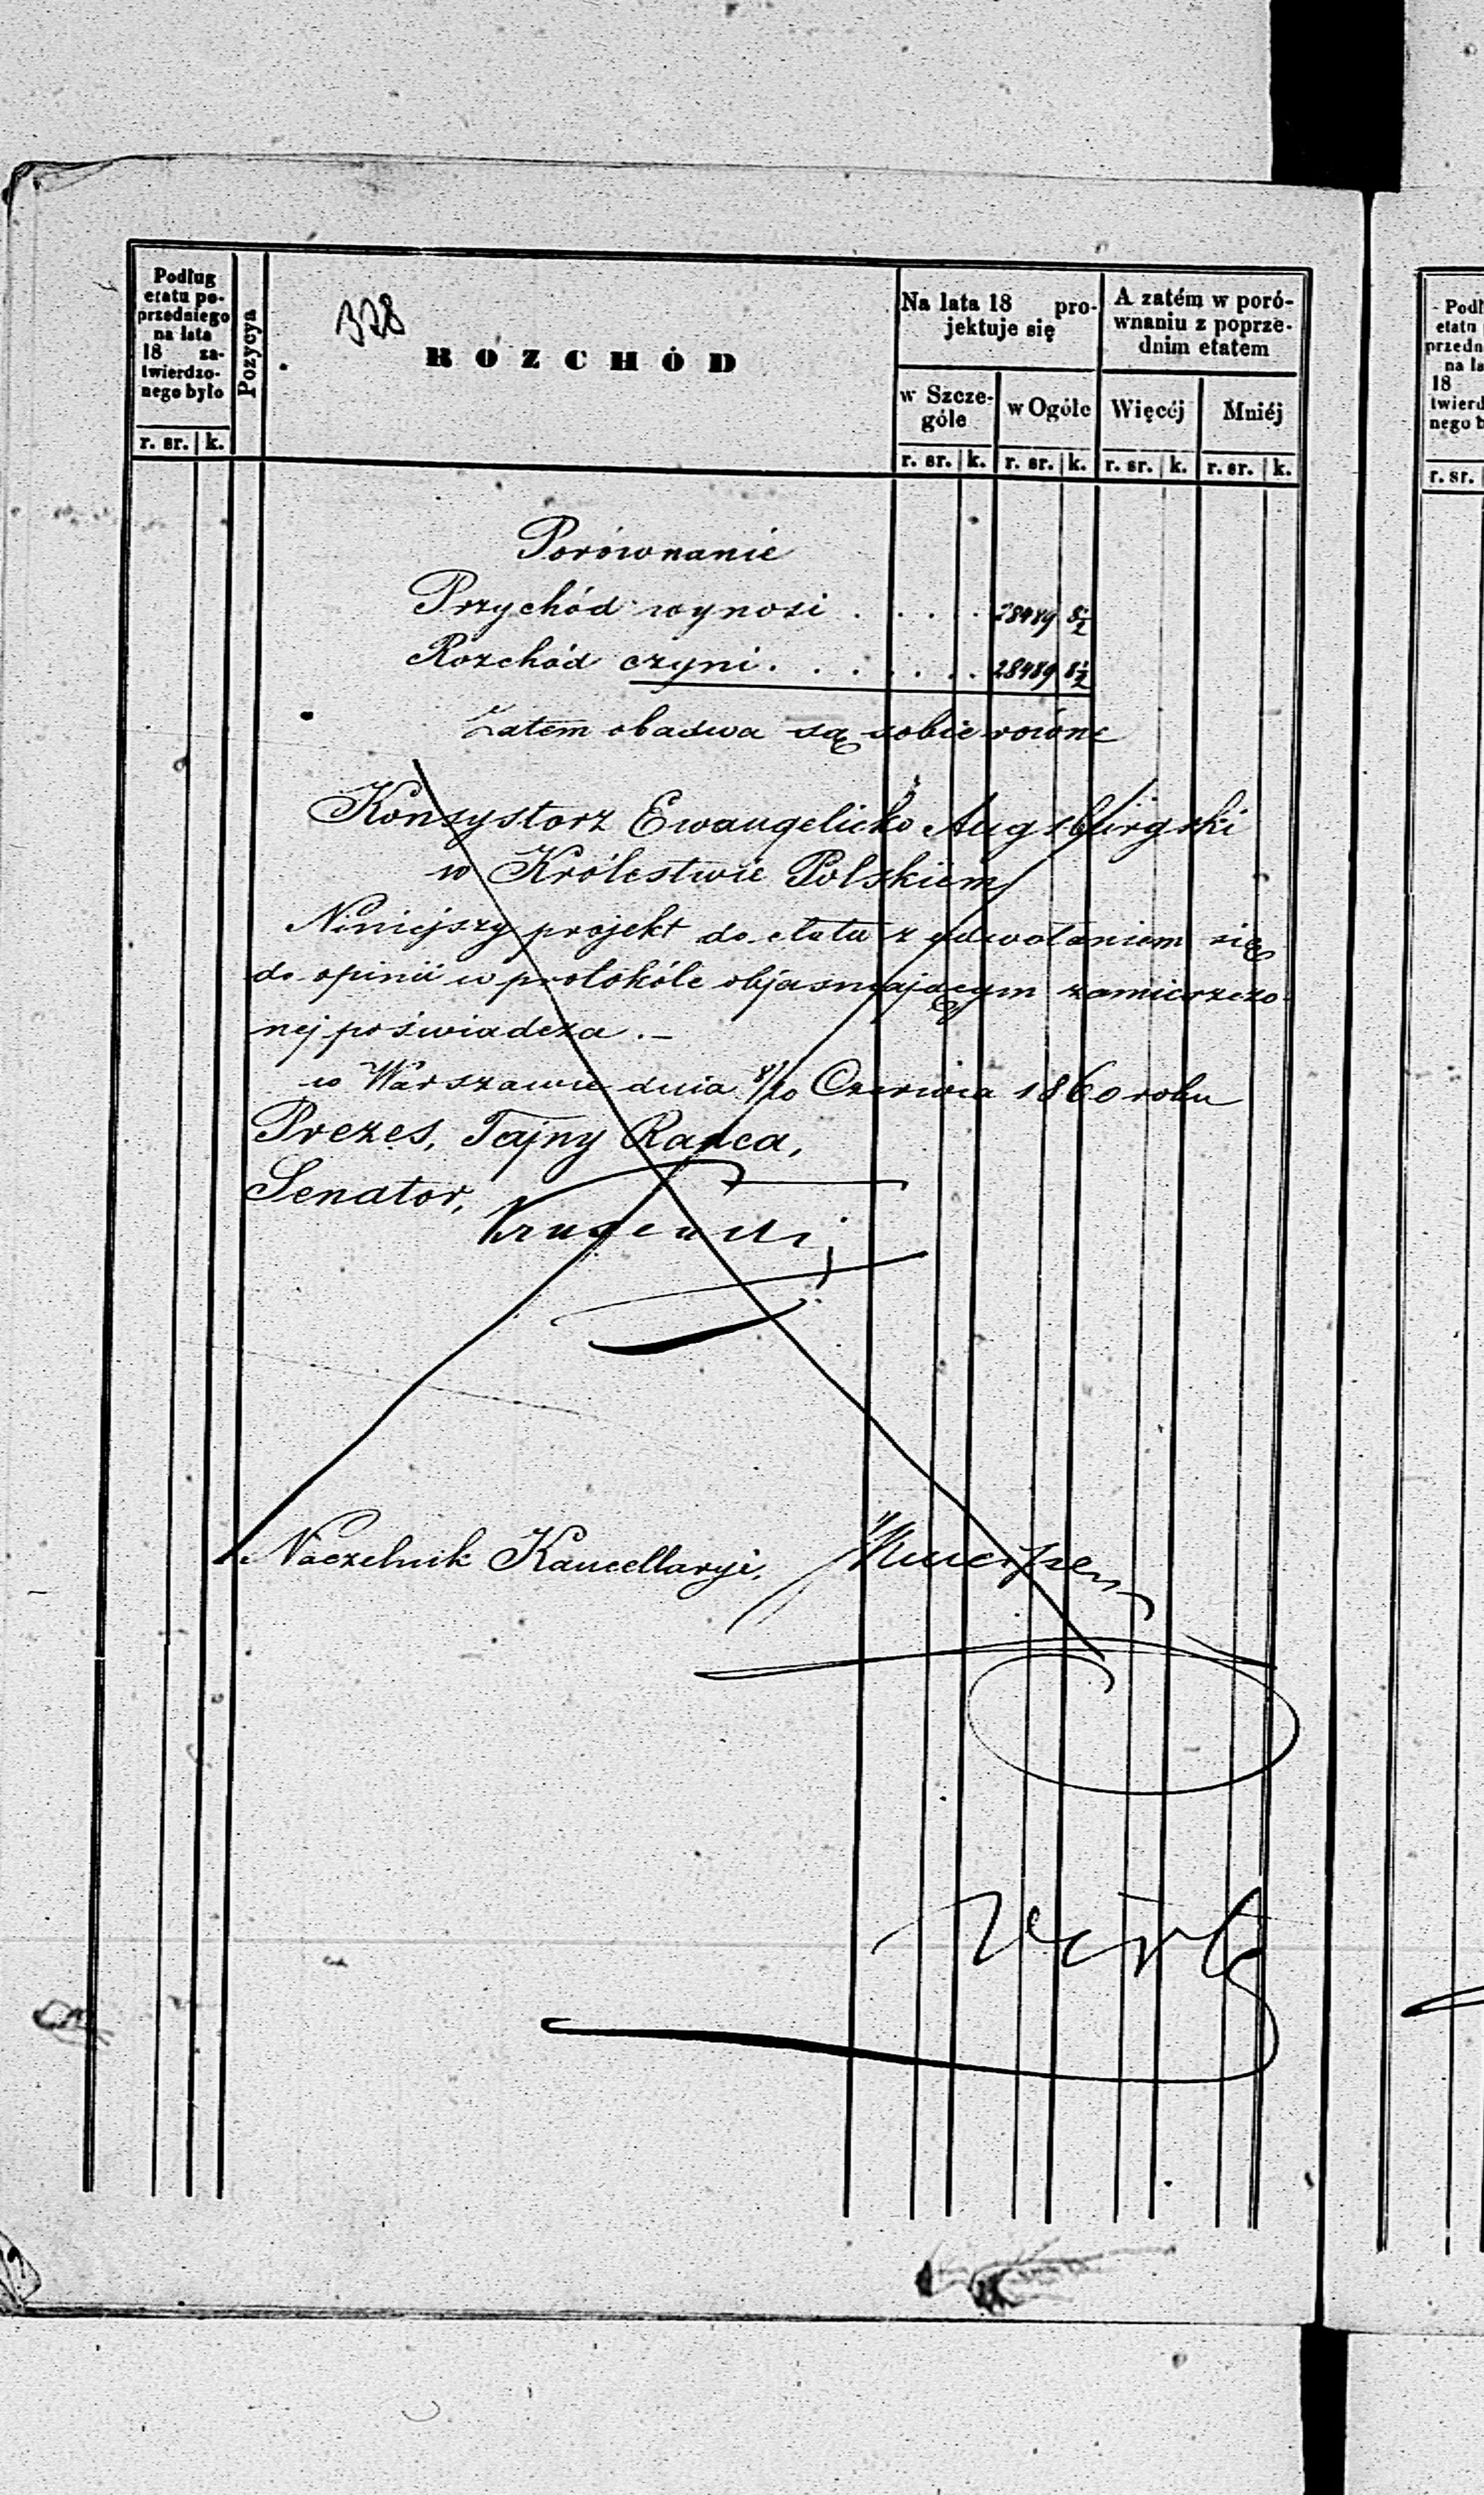 328
Podług
etatu po-
przedniego
na lata
18 za-
twierdzo-
nego było
r. sr. k.
Pozycya
ROZCHÓD
Na lata 18 pro-
jektuje się
w Szcze-
góle
r. sr. k.
w Ogóle
r. sr. k.
A zatém w poró-
wnaniu z poprze-
dnim etatem
Więcéj
r. sr. k.
Mniéj
r. sr. k.
Porównanie
Przychód wynosi . . . . 28489 8½
Rozchód czyni . . . . . . 28489 8½
Zatem obadwa są sobie równe
Konsystorz Ewangelicko Augsburgski
w Królestwie Polskiem
Niniejszy projekt do etatu z odwołaniem się
do opinii w protokóle objasniającym zamieszczo-
nej poświadcza. –
w Warszawie dnia 8/20 Czerwca 1860 roku
Prezes, Tajny Radca,
Senator,
Naczelnik Kancellaryi,
Podł
etatu
przedn
na la
18
twierd
nego b
r. sr.